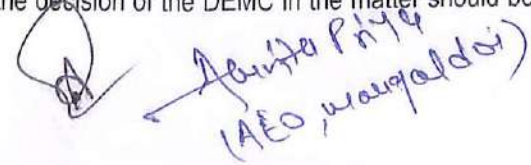 the decision of the DEMC in the matter should be
Priya
(AEO, Mangaldoi)